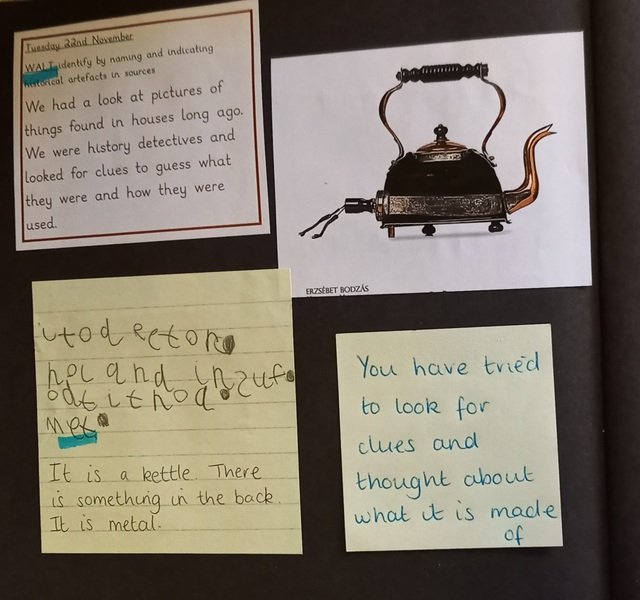 Tuesday 22nd November
WALT identify by naming and indicating
historical artefacts in sources
We had a look at pictures of
things found in houses long ago.
We were history detectives and
looked for clues to guess what
they were and how they were
used.
ERZSÉBET BODZÁS
and
met
It is a kettle. There
is something in the back.
It is metal.
You have tried
to look for
clues and
thought about
what it is made
of